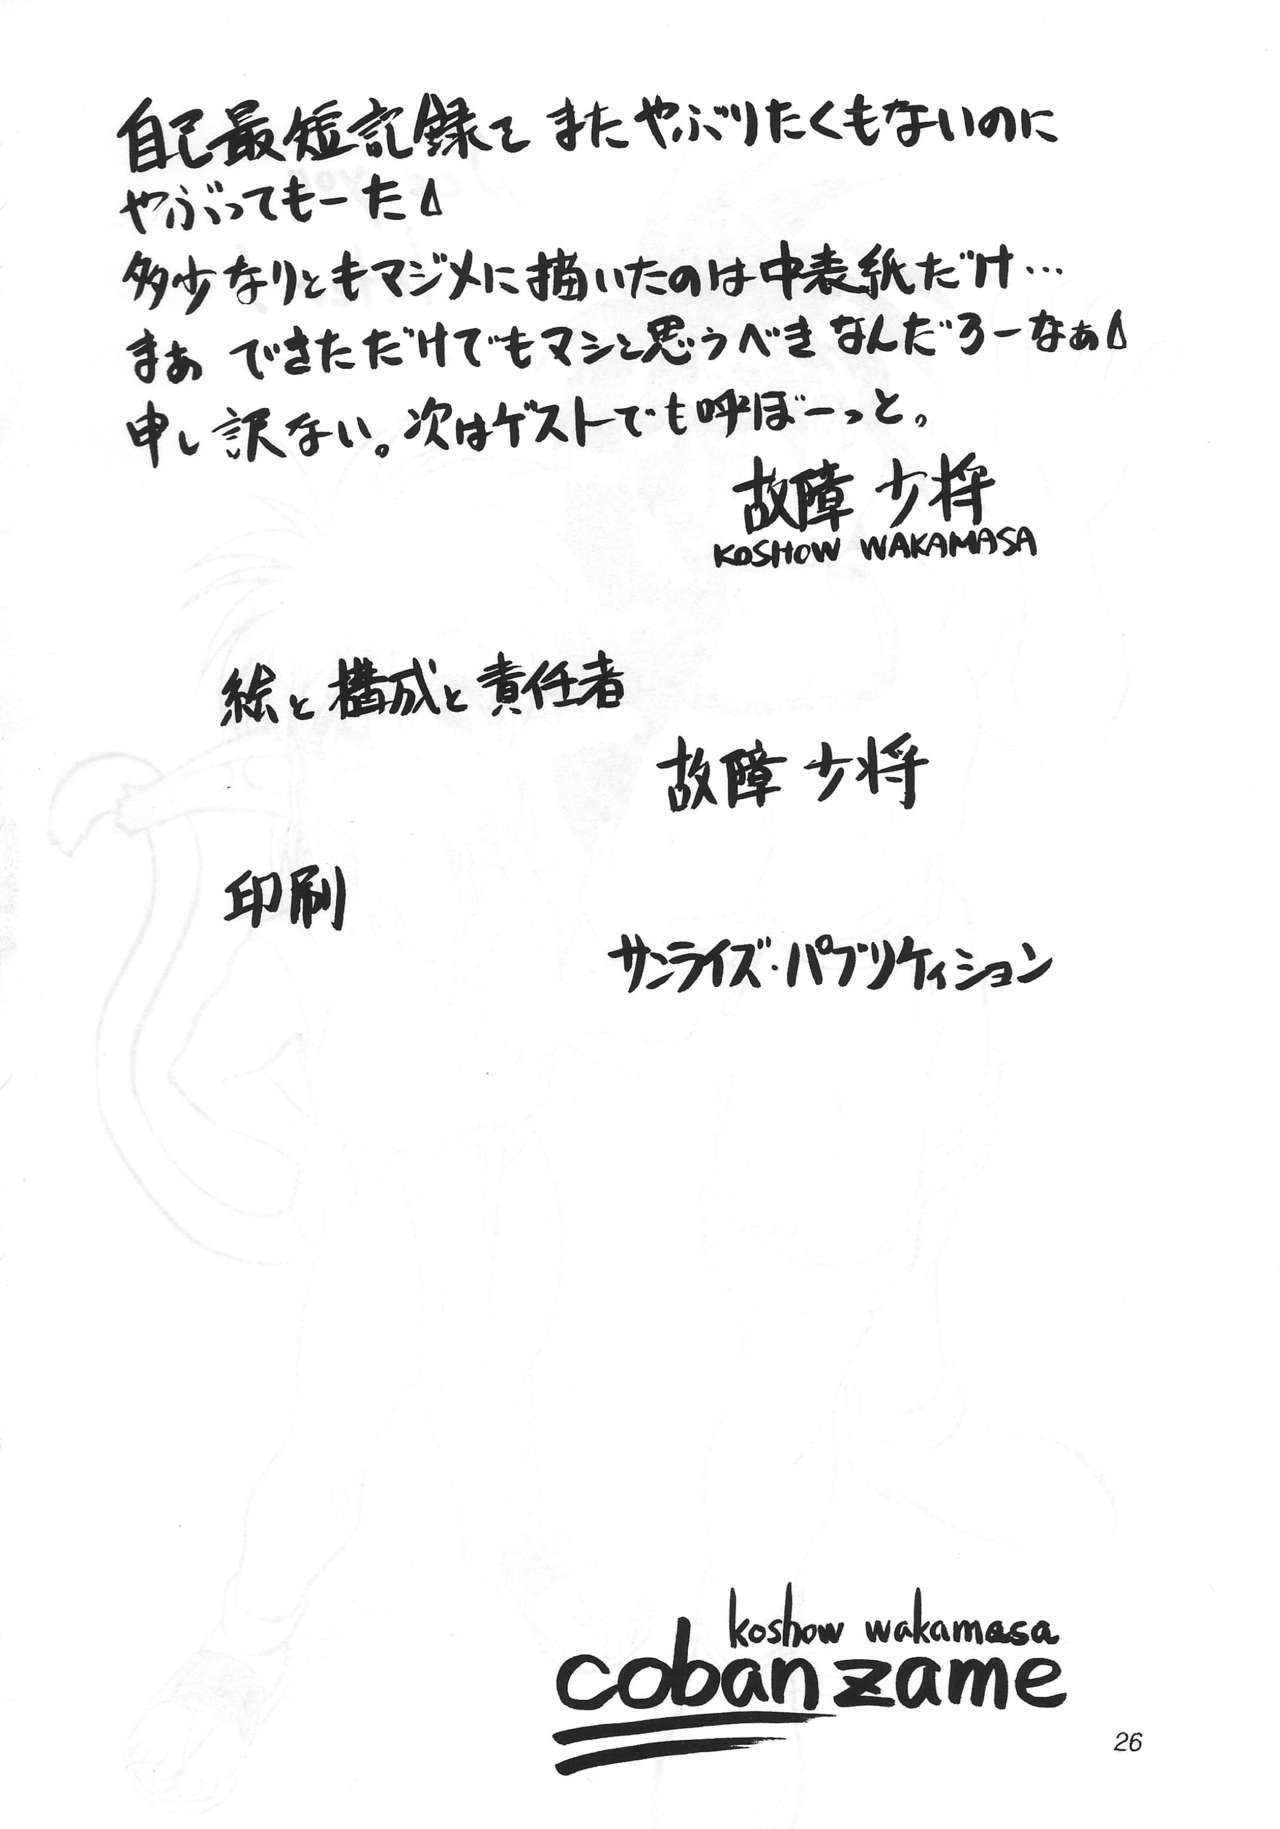 自己最短記録を またやぶりたくもないのに
やぶってもーた
多少なりともマジメに描いたのは中表紙だけ…
まぁ できただけでもマシと思うべきなんだろーなぁ
申し訳ない。次はゲストでも呼ぼーっと。
故障 少将
KOSHOW WAKAMASA
絵と構成と責任者
故障 少将
印刷
サンライズ・パブリケィション
koshow wakamasa
cobanzame
26